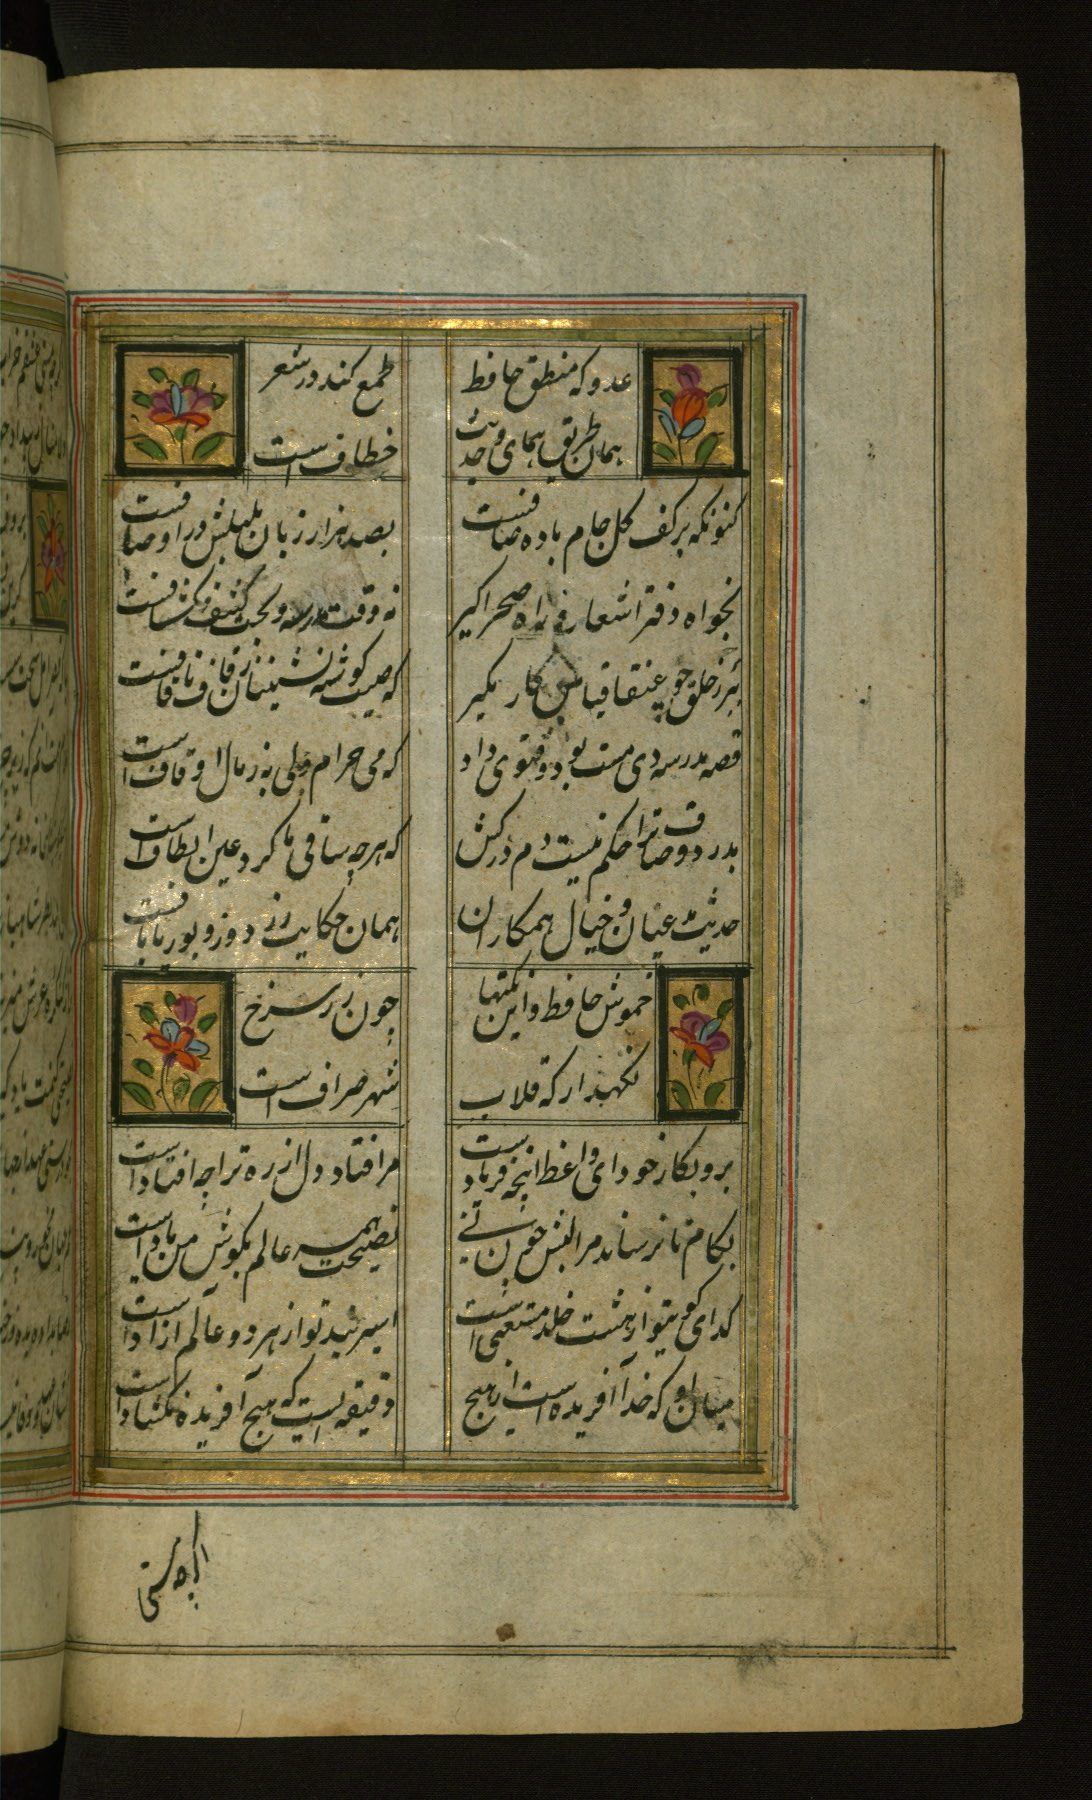 عدو که منطق حافظ طمع کند در شعر
همان طریق همای و حدیث خطاف است
کنونکه بر کف گل جام باده صافست بصد هزار زبان بلبلش در اوصافست
بخواه دفتر اشعار و راه صحرا گیر نه وقت مدرسه و بحث کشف و کشافست
ببر ز خلق چو عنقا قیاس کار بگیر که صیت گوشه نشینان ز قاف تا قافست
قصه مدرسه دی مست بود و فتوی داد که می حرام ولی به ز مال اوقاف است
بدرد و صاف ترا حکم نیست دم درکش که هرچه ساقی ما کرد عین الطاف است
حدیث عیان و خیال همکاران همان حکایت زر دوز و بوریا بافست
خموش حافظ و این نکتها چون زر سرخ
نگهدار که قلاب شهر صراف است
برو بکار خود ای واعظ اینچه فریاد است مرا فتاد دل از ره ترا چه افتاد است
بکام تا نرساند مرا لبش چون نی نصیحت همه عالم بگوش من باد است
گدای کوی تو از هشت خلد مستغنی است اسیر بند تو از هر دو عالم ازاد است
میان او که خدا آفریده است از هیچ دقیقه ایست که هیچ آفریده نگشاد است
اگرچه مستی